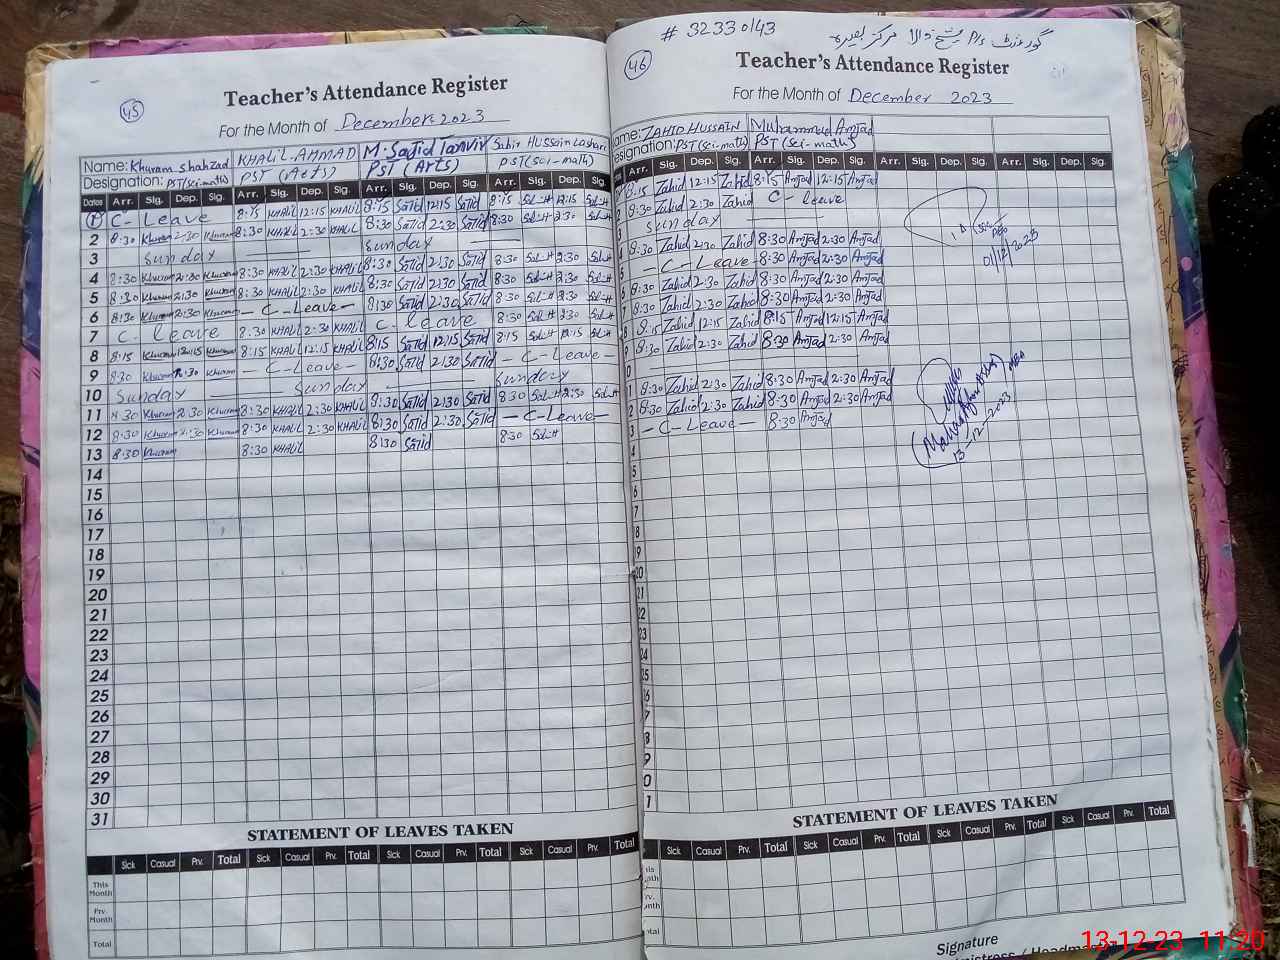 45
Teacher's Attendance Register
For the Month of December 2023
Name: Khuram Shahzad KHALIL AHMAD M. Sajid Tanvir Sabir Hussain Lashari
Designation: PST (Sci-math) PST (Arts) PST (Arts) PST (Sci-math)
Dates Arr. Sig. Dep. Sig. Arr. Sig. Dep. Sig. Arr. Sig. Dep. Sig. Arr. Sig. Dep. Sig.
1 C-Leave 8:15 KHALIL 12:15 KHALIL 8:15 Sajid 12:15 Sajid 8:15 12:15
2 8:30 Khuram 2:30 Khuram 8:30 KHALIL 2:30 KHALIL 8:30 Sajid 2:30 Sajid 8:30 2:30
3 Sunday Sunday
4 8:30 Khuram 2:30 Khuram 8:30 KHALIL 2:30 KHALIL 8:30 Sajid 2:30 Sajid 8:30 2:30
5 8:30 Khuram 2:30 Khuram 8:30 KHALIL 2:30 KHALIL 8:30 Sajid 2:30 Sajid 8:30 2:30
6 8:30 Khuram 2:30 Khuram - C-Leave - 8:30 Sajid 2:30 Sajid 8:30 2:30
7 C-leave 8:30 KHALIL 2:30 KHALIL C-leave 8:30 2:30
8 8:15 Khuram 12:15 Khuram 8:15 KHALIL 12:15 KHALIL 8:15 Sajid 12:15 Sajid 8:15 12:15
9 8:30 Khuram 2:30 Khuram - C-Leave - 8:30 Sajid 2:30 Sajid - C-Leave -
10 Sunday Sunday Sunday
11 8:30 Khuram 2:30 Khuram 8:30 KHALIL 2:30 KHALIL 8:30 Sajid 2:30 Sajid 8:30 2:30
12 8:30 Khuram 2:30 Khuram 8:30 KHALIL 2:30 KHALIL 8:30 Sajid 2:30 Sajid - C-Leave -
13 8:30 Khuram 8:30 KHALIL 8:30 Sajid 8:30
14
15
16
17
18
19
20
21
22
23
24
25
26
27
28
29
30
31
STATEMENT OF LEAVES TAKEN
Sick Casual Prv. Total Sick Casual Prv. Total Sick Casual Prv. Total Sick Casual Prv. Total
This Month
Prv. Month
Total
# 32330143
گورنمنٹ P/s شیخ والا مرکز بصیرہ
46
Teacher's Attendance Register
For the Month of December 2023
ame: ZAHID HUSSAIN Muhammad Amjad
esignation: PST (Sci-math) PST (Sci-maths)
Sig. Dep. Sig. Arr. Sig. Dep. Sig. Arr. Sig. Dep. Sig. Arr. Sig. Dep. Sig.
8:15 Zahid 12:15 Zahid 8:15 Amjad 12:15 Amjad
2 8:30 Zahid 2:30 Zahid C-leave
3 Sunday
4 8:30 Zahid 2:30 Zahid 8:30 Amjad 2:30 Amjad
5 - C-Leave - 8:30 Amjad 2:30 Amjad
8:30 Zahid 2:30 Zahid 8:30 Amjad 2:30 Amjad
7 8:30 Zahid 2:30 Zahid 8:30 Amjad 2:30 Amjad
8 8:15 Zahid 12:15 Zahid 8:15 Amjad 12:15 Amjad
9 8:30 Zahid 2:30 Zahid 8:30 Amjad 2:30 Amjad
0
1 8:30 Zahid 2:30 Zahid 8:30 Amjad 2:30 Amjad
2 8:30 Zahid 2:30 Zahid 8:30 Amjad 2:30 Amjad
3 - C-Leave - 8:30 Amjad
4
5
6
7
8
9
20
21
22
23
24
25
26
7
8
9
0
1
01/12/2023
13-12-2023
STATEMENT OF LEAVES TAKEN
Sick Casual Prv. Total Sick Casual Prv. Total Sick Casual Prv. Total Sick Casual Prv. Total
Signature
mistress / Headma
13-12-23 11:20